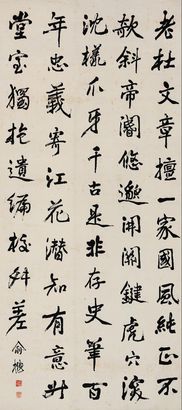 老杜文章擅一家國風純正不
欹斜帝閽悠邈開關鍵虎穴深
沈探爪牙千古是非存史筆百
年忠義寄江花潛知有意升
堂室獨抱遺編校舛差
俞樾